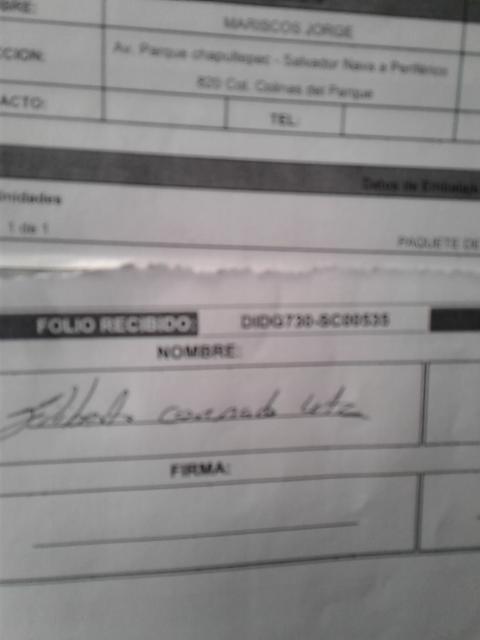 BRE: MARISCOS JORGE
CCION: Av. Parque chapultepec - Salvador Nava a Periférico
820 Col. Colinas del Parque
ACTO: TEL:
Datos de Embalaje
Unidades
1 de 1
PAQUETE DE
FOLIO RECIBIDO: DIDG730-SC00535
NOMBRE:
FIRMA: